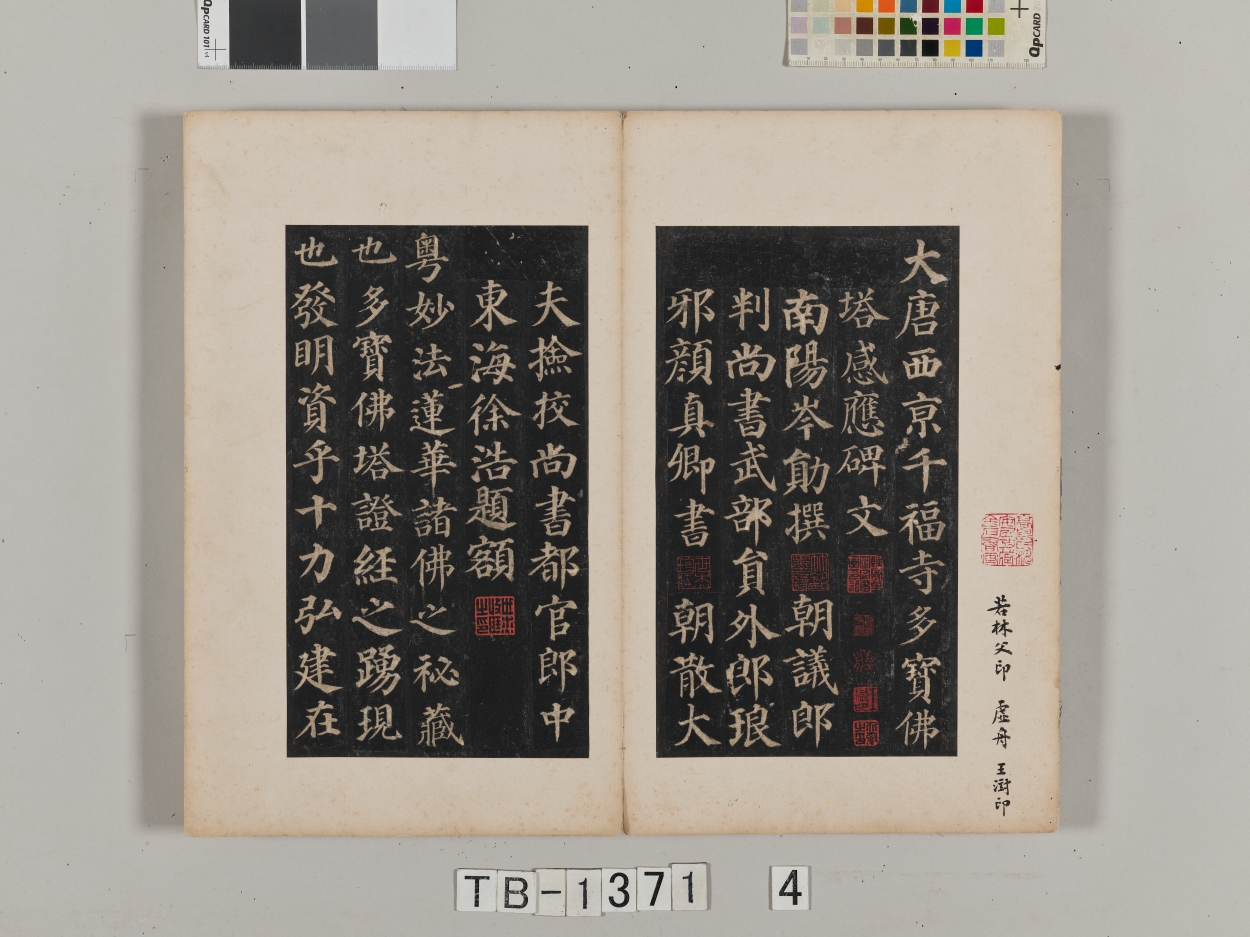 大唐西京千福寺多寶佛
塔感應碑文
南陽岑勛撰朝議郎
判尚書武部貟外郎琅
邪顏真卿書朝散大
夫撿挍尚書都官郎中
東海徐浩題額
粵妙法蓮華諸佛之祕藏
也多寶佛塔證經之踴現
也發明資乎十力弘建在
若林父印 虛舟 王澍印
TB-1371 4
QpCARD 101 v4
QpCARD